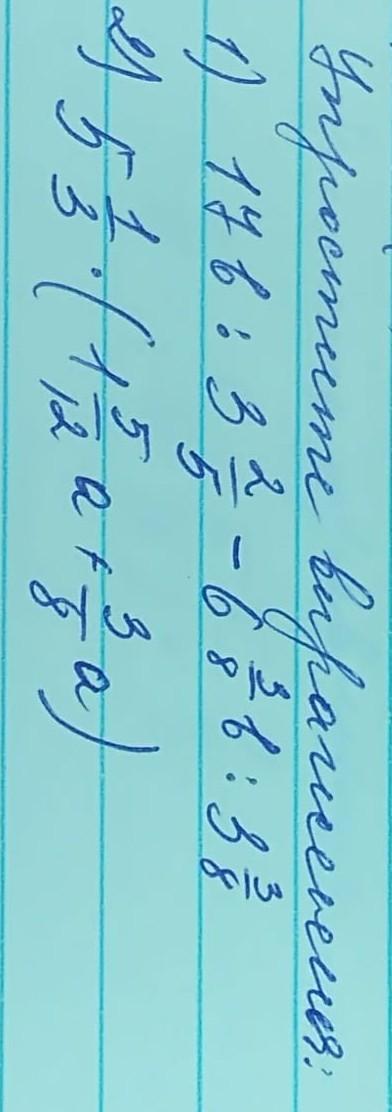 Упростите выражения:
1) 17 в : 3 2/5 - 6 3/8 в : 3 3/8
2) 5 1/3 · (1 5/12 a + 3/8 a)